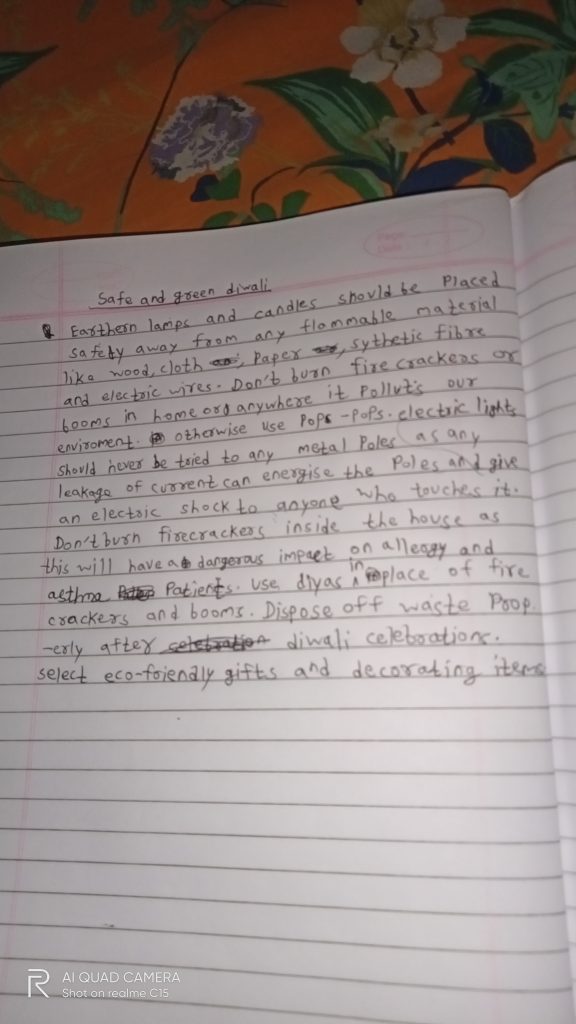 Page:
Date:
Safe and green diwali
Earthern lamps and candles should be Placed
safety away from any flammable material
like wood, cloth, Paper, sythetic fibre
and electric wires. Don't burn fire crackers or
booms in home or anywhere it Pollut's our
enviroment. otherwise use Pops-Pops. electric lights
should never be tried to any metal Poles as any
leakage of current can energise the Poles and give
an electric shock to anyone who touches it.
Don't burn firecrackers inside the house as
this will have a dangerous impact on allergy and
asthma Patients. use diyas in place of fire
crackers and booms. Dispose off waste Prop
-erly after diwali celebrations.
select eco-friendly gifts and decorating items
R AI QUAD CAMERA
Shot on realme C15